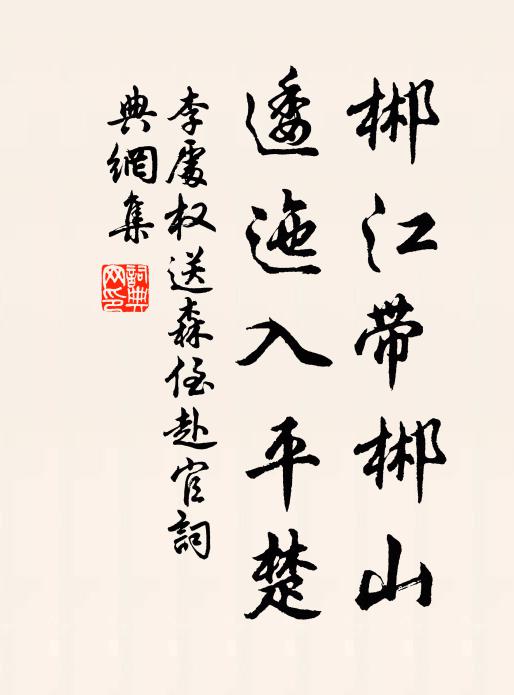 郴江带郴山
逶迤入平楚
李處权送森侄赴官詞
典網集
詞典
网印